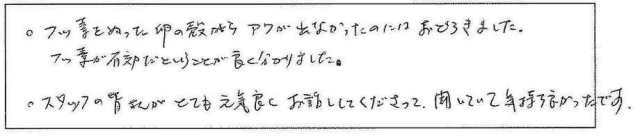 ○ フッ素をぬった卵の殻からアワが出なかったのにはおどろきました。
フッ素が有効だということが良く分かりました。
○ スタッフの皆さんがとても元気良くお話ししてくださって、聞いていて気持ち良かったです。